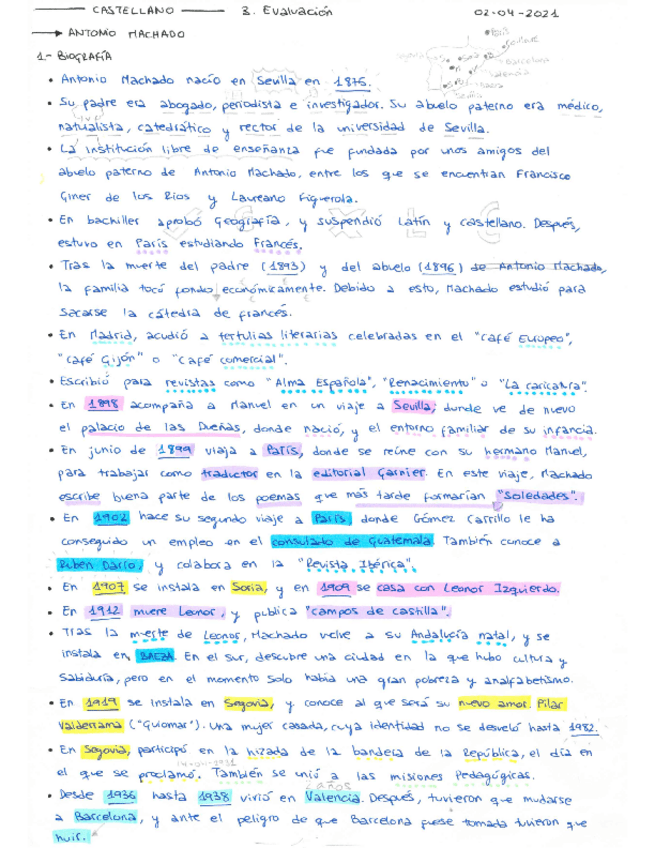 CASTELLANO 3. Evaluación 02-04-2021
→ ANTONIO MACHADO
París
Soria
Barcelona
Valencia
Baeza
Sevilla
1.- BIOGRAFÍA
• Antonio Machado nacío en Sevilla en 1875.
• Su padre era abogado, periodista e investigador. Su abuelo paterno era médico,
naturalista, catedrático y rector de la universidad de Sevilla.
• La institución libre de enseñanza fue fundada por unos amigos del
abuelo paterno de Antonio Machado, entre los que se encuentran Francisco
Giner de los Rios y Laureano Figuerola.
• En bachiller aprobó Geografía, y suspendió Latín y castellano. Después,
estuvo en París estudiando Francés.
• Tras la muerte del padre (1893) y del abuelo (1896) de Antonio Machado,
la familia tocó fondo económicamente. Debido a esto, Machado estudió para
sacarse la cátedra de francés.
• En Madrid, acudió a tertulias literarias celebradas en el "Café Europeo",
"café Gijón" o "café comercial".
• Escribió para revistas como "Alma Española", "Renacimiento" o "La caricatura".
• En 1898 acompaña a Manuel en un viaje a Sevilla, donde ve de nuevo
el palacio de las Dueñas, donde nació, y el entorno familiar de su infancia.
• En junio de 1899 viaja a París, donde se reúne con su hermano Manuel,
para trabajar como traductor en la editorial Garnier. En este viaje, Machado
escribe buena parte de los poemas que más tarde formarían "Soledades".
• En 1902 hace su segundo viaje a París donde Gómez Carrillo le ha
conseguido un empleo en el consulado de Guatemala. También conoce a
Rubén Darío, y colabora en la "Revista Ibérica".
• En 1907 se instala en Soria, y en 1909 se casa con Leonor Izquierdo.
• En 1912 muere Leonor, y publica "campos de castilla".
• Tras la muerte de Leonor, Machado vuelve a su Andalucía natal, y se
instala en BAEZA. En el sur, descubre una ciudad en la que hubo cultura y
sabiduría, pero en el momento solo había una gran pobreza y analfabetismo.
• En 1919 se instala en Segovia, y conoce al que será su nuevo amor. Pilar
Valderrama ("Guiomar"). Una mujer casada, cuya identidad no se desveló hasta 1982.
• En Segovia, participó en la hizada de la bandera de la República, el día en
14-04-1931
el que se proclamó. También se unió a las misiones Pedagógicas.
2 años
• Desde 1936 hasta 1938 vivió en Valencia. Después, tuvieron que mudarse
a Barcelona, y ante el peligro de que Barcelona fuese tomada tuvieron que
huir.